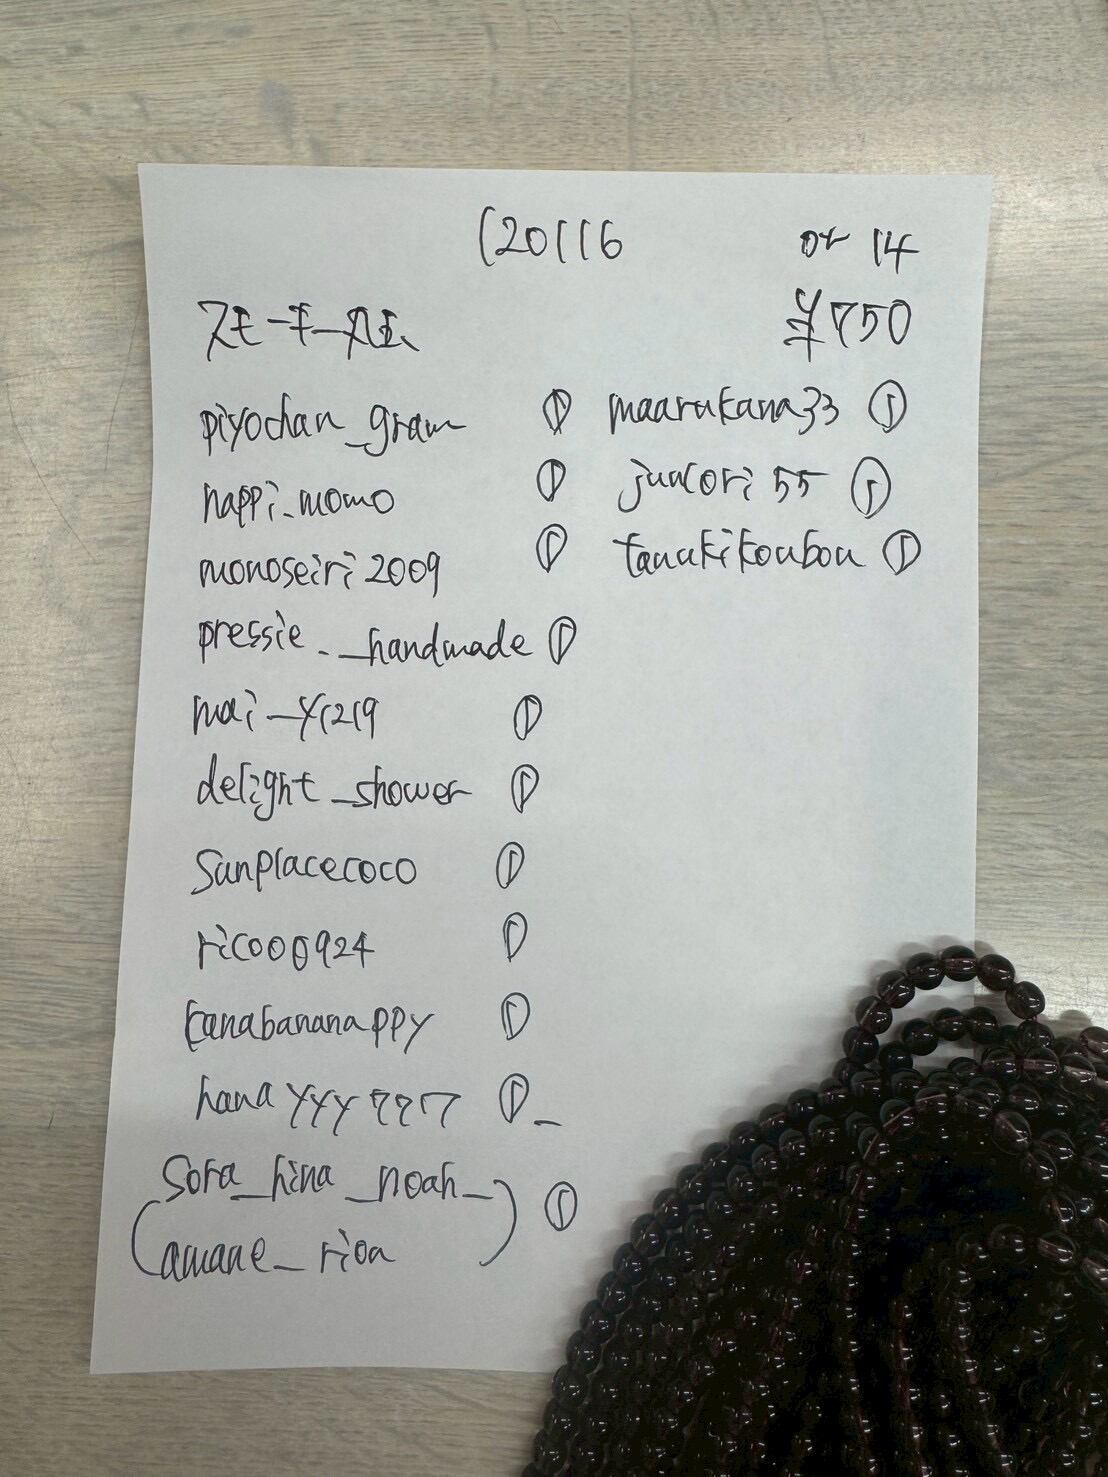 120116 or 14
スモーキー ¥750
piyochan_gram ①
happi.momo ①
monoseiri2009 ①
pressie._handmade ①
mai_y1219 ①
delight_shower ①
sunplacecoco ①
rico00924 ①
kanabananappy ①
hanayyy777 ①
(sora_hina_noah_
amane_rion) ①
maarukana33 ①
juncori55 ①
tanukikoubou ①